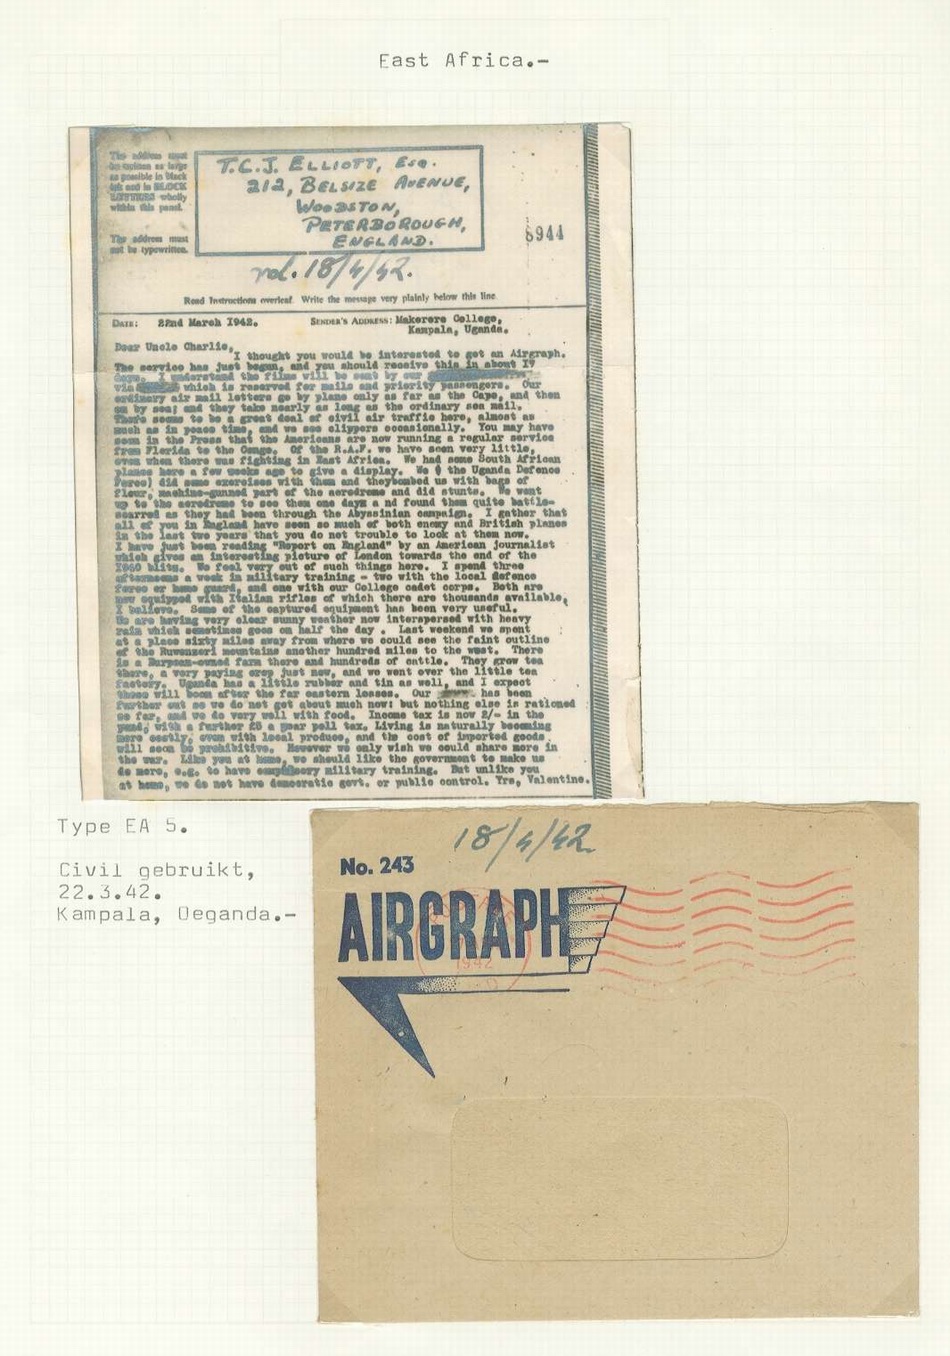 East Africa.-
The address must
be written as large
as possible in black
ink and in BLOCK
LETTERS wholly
within this panel.
The address must
not be typewritten.
T.C.J. ELLIOTT, Esq.
212, BELSIZE AVENUE,
WOODSTON,
PETERBOROUGH,
ENGLAND.
8944
18/4/42.
Read Instructions overleaf. Write the message very plainly below this line
DATE: 22nd March 1942. SENDER'S ADDRESS: Makerere College,
Kampala, Uganda.
Dear Uncle Charlie,
I thought you would be interested to get an Airgraph.
The service has just begun, and you should receive this in about 17
days. I understand the films will be sent by our
via which is reserved for mails and priority passengers. Our
ordinary air mail letters go by plane only as far as the Cape, and then
on by sea; and they take nearly as long as the ordinary sea mail.
There seems to be a great deal of civil air traffic here, almost as
much as in peace time, and we see clippers occasionally. You may have
seen in the Press that the Americans are now running a regular service
from Florida to the Congo. Of the R.A.F. we have seen very little,
even when there was fighting in East Africa. We had some South African
planes here a few weeks ago to give a display. We ( the Uganda Defence
Force) did some exercises with them and theybombed us with bags of
flour, machine-gunned part of the aerodrome and did stunts. We went
up to the aerodrome to see them one daym a nd found them quite battle-
scarred as they had been through the Abyssinian campaign. I gather that
all of you in England have seen so much of both enemy and British planes
in the last two years that you do not trouble to look at them now.
I have just been reading "Report on England" by an American journalist
which gives an interesting picture of London towards the end of the
1940 blitz. We feel very out of such things here. I spend three
afternoons a week in military training - two with the local defence
force or home guard, and one with our College cadet corps. Both are
now equipped with Italian rifles of which there are thousands available,
I believe. Some of the captured equipment has been very useful.
We are having very clear sunny weather now interspersed with heavy
rain which sometimes goes on half the day . Last weekend we spent
at a place sixty miles away from where we could see the faint outline
of the Ruwenzori mountains another hundred miles to the west. There
is a European-owned farm there and hundreds of cattle. They grow tea
there, a very paying crop just now, and we went over the little tea
factory. Uganda has a little rubber and tin as well, and I expect
these will boom after the far eastern losses. Our has been
further cut so we do not get about much now; but nothing else is rationed
so far, and we do very well with food. Income tax is now 2/- in the
pound, with a further £5 a year poll tax. Living is naturally becoming
more costly, even with local produce, and the cost of imported goods
will soon be prohibitive. However we only wish we could share more in
the war. Like you at home, we should like the government to make us
do more, e.g. to have compulsory military training. But unlike you
at home, we do not have democratic govt. or public control. Yrs, Valentine.
Type EA 5.
Civil gebruikt,
22.3.42.
Kampala, Oeganda.-
18/4/42.
No. 243
AIRGRAPH
1942